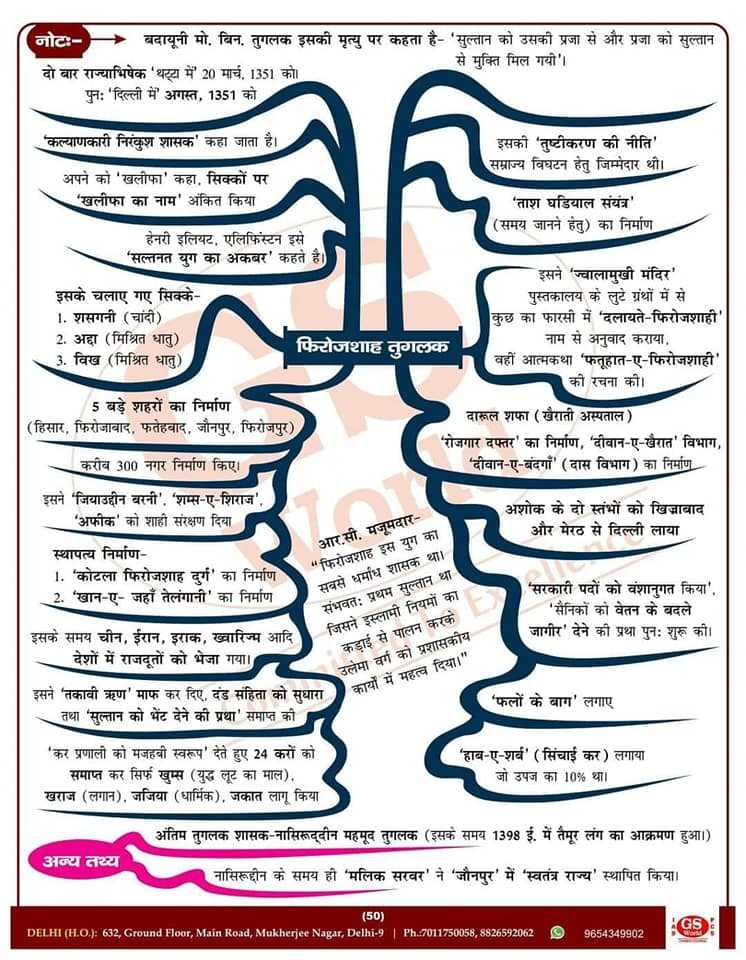 नोटः-
बदायूनी मो. बिन. तुगलक इसकी मृत्यु पर कहता है- ‘सुल्तान को उसकी प्रजा से और प्रजा को सुल्तान
से मुक्ति मिल गयी’।
दो बार राज्याभिषेक ‘थट्टा में’ 20 मार्च, 1351 को।
पुन: ‘दिल्ली में’ अगस्त, 1351 को
‘कल्याणकारी निरंकुश शासक’ कहा जाता है।
अपने को ‘खलीफा’ कहा, सिक्कों पर
‘खलीफा का नाम’ अंकित किया
हेनरी इलियट, एलिफिंस्टन इसे
‘सल्तनत युग का अकबर’ कहते है।
इसके चलाए गए सिक्के-
1. शसगनी (चांदी)
2. अद्दा (मिश्रित धातु)
3. विख (मिश्रित धातु)
फिरोजशाह तुगलक
5 बड़े शहरों का निर्माण
(हिसार, फिरोजाबाद, फतेहबाद, जौनपुर, फिरोजपुर)
करीब 300 नगर निर्माण किए।
इसने ‘जियाउद्दीन बरनी’, ‘शम्स-ए-शिराज’,
‘अफीक’ को शाही संरक्षण दिया
स्थापत्य निर्माण-
1. ‘कोटला फिरोजशाह दुर्ग’ का निर्माण
2. ‘खान-ए- जहाँ तेलंगानी’ का निर्माण
इसके समय चीन, ईरान, इराक, ख्वारिज्म आदि
देशों में राजदूतों को भेजा गया।
इसने ‘तकावी ऋण’ माफ कर दिए, दंड संहिता को सुधारा
तथा ‘सुल्तान को भेंट देने की प्रथा’ समाप्त की
‘कर प्रणाली को मजहबी स्वरूप’ देते हुए 24 करों को
समाप्त कर सिर्फ खुम्स (युद्ध लूट का माल),
खराज (लगान), जजिया (धार्मिक), जकात लागू किया
इसकी ‘तुष्टीकरण की नीति’
सम्राज्य विघटन हेतु जिम्मेदार थी।
‘ताश घडियाल संयंत्र’
(समय जानने हेतु) का निर्माण
इसने ‘ज्वालामुखी मंदिर’
पुस्तकालय के लुटे ग्रंथों में से
कुछ का फारसी में ‘दलायते-फिरोजशाही’
नाम से अनुवाद कराया,
वहीं आत्मकथा ‘फतूहात-ए-फिरोजशाही’
की रचना की।
दारूल शफा (खैराती अस्पताल)
‘रोजगार दफ्तर’ का निर्माण, ‘दीवान-ए-खैरात’ विभाग,
‘दीवान-ए-बंदगाँ’ (दास विभाग) का निर्माण
अशोक के दो स्तंभों को खिज्राबाद
और मेरठ से दिल्ली लाया
‘सरकारी पदों को वंशानुगत किया’,
‘सैनिकों को वेतन के बदले
जागीर’ देने की प्रथा पुन: शुरू की।
‘फलों के बाग’ लगाए
‘हाब-ए-शर्ब’ (सिंचाई कर) लगाया
जो उपज का 10% था।
आर.सी. मजूमदार-
“फिरोजशाह इस युग का
सबसे धर्मांध शासक था।
संभवत: प्रथम सुल्तान था
जिसने इस्लामी नियमों का
कड़ाई से पालन करके
उलेमा वर्ग को प्रशासकीय
कार्यों में महत्व दिया।”
GS
World
Committed To Excellence
अन्य तथ्य
अंतिम तुगलक शासक-नासिरूद्दीन महमूद तुगलक (इसके समय 1398 ई. में तैमूर लंग का आक्रमण हुआ।)
नासिरूद्दीन के समय ही ‘मलिक सरवर’ ने ‘जौनपुर’ में ‘स्वतंत्र राज्य’ स्थापित किया।
(50)
DELHI (H.O.): 632, Ground Floor, Main Road, Mukherjee Nagar, Delhi-9 | Ph.:7011750058, 8826592062 9654349902
IAS GS World PCS